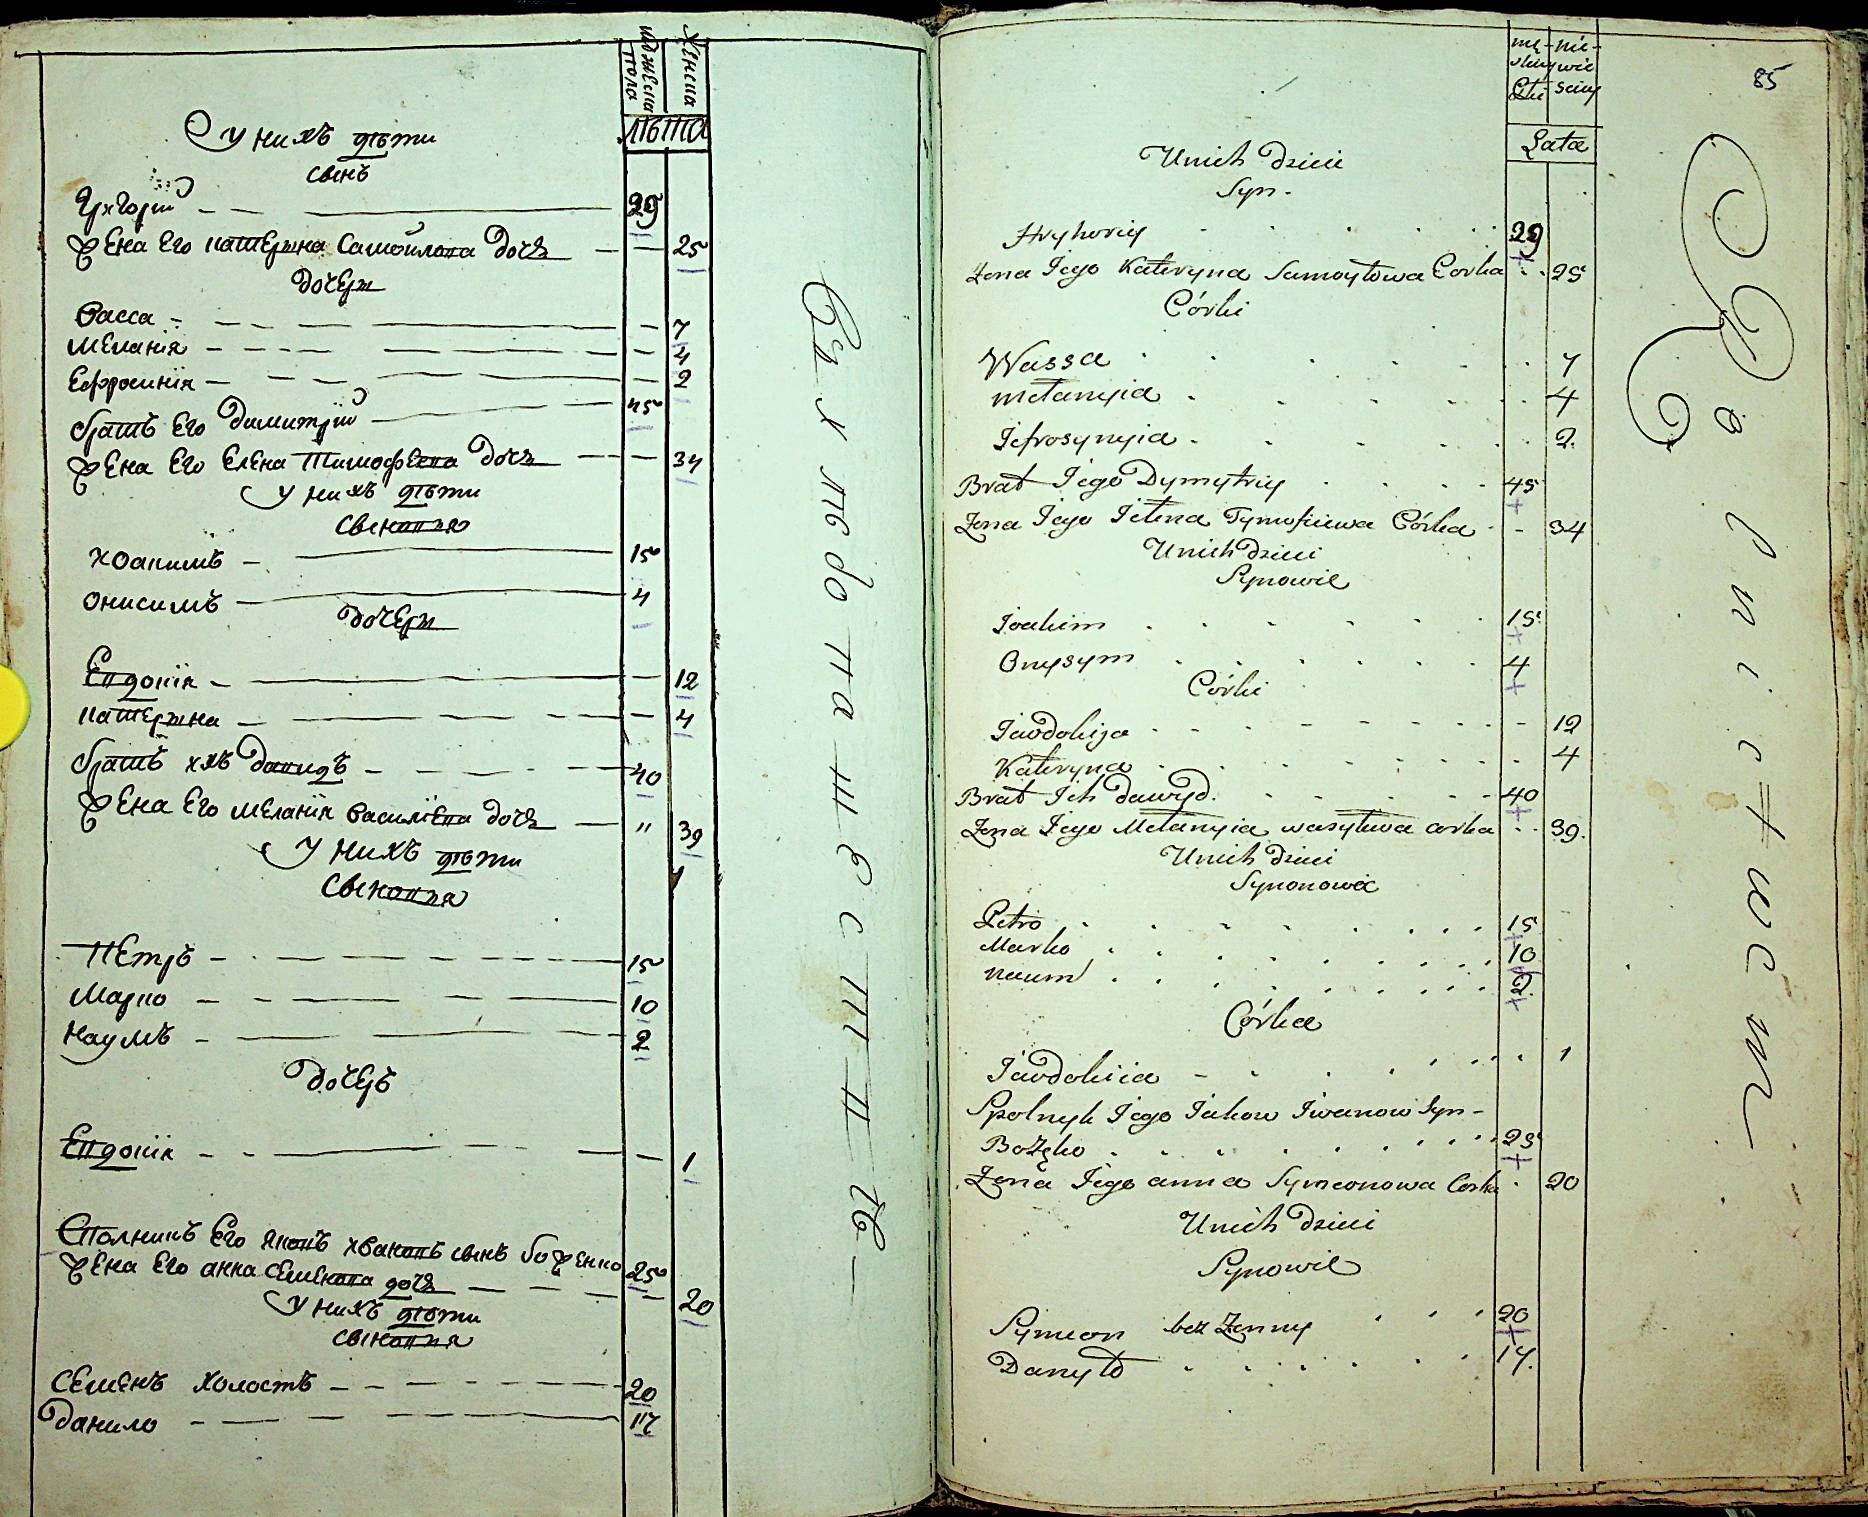 мужеска пола
женска
лѣта
У нихъ дѣти
сынъ
Григорий 29
Жена Его катерина Самойлова дочь 25
дочери
Васса 7
Меланія 4
Ефросинія 2
братъ Его Димитрій 45
Жена Его Елена Тимофеева дочь 34
У нихъ дѣти
сыновья
Иоакимъ 15
Онисимъ 4
дочери
Евдокія 12
катерина 4
братъ ихъ давидъ 40
Жена Его меланія василіева дочь " 39
У нихъ дѣти
сыновья
Петръ 15
Марко 10
Наумъ 2
дочерь
Евдокія 1
Сполникъ Его Яковъ Ивановъ сынъ боженко 25
Жена Его анна семенова дочь 20
У нихъ дѣти
сыновья
Семенъ холостъ 20
данило 17
85
Lata
Unich dzieci
Syn
Hryhoriy 29
Zona Jego Kateryna Samoyłowa Corka 25
Córki
Wassa 7
Mełanyia 4
Jefrosynyia 2
Brat Jego Dymytriy 45
Zona Jego Jełena Tymofiiewa Córka 34
Unich dzieci
Synowie
Joakim 15
Onysym 4
Córki
Jawdokija 12
Kateryna 4
Brat Ich dawyd 40
Zona Jego Mełanyia wasylewa corka 39
Unich dzieci
Synonowie
Petro 15
Marko 10
naum 2
Córka
Jawdokiia 1
Spolnyk Jego Jakow Iwanow Syn
Bożęko 25
Zona Jego anna Symeonowa Corka 20
Unich dzieci
Synowie
Symeon bez Zenny 20
Danyło 17